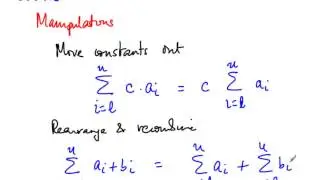 Manipulations
Move constants out
u u
∑ c·aᵢ = c ∑ aᵢ
i=l i=l
Rearrange & recombine
u u u
∑ aᵢ+bᵢ = ∑ aᵢ + ∑ bᵢ